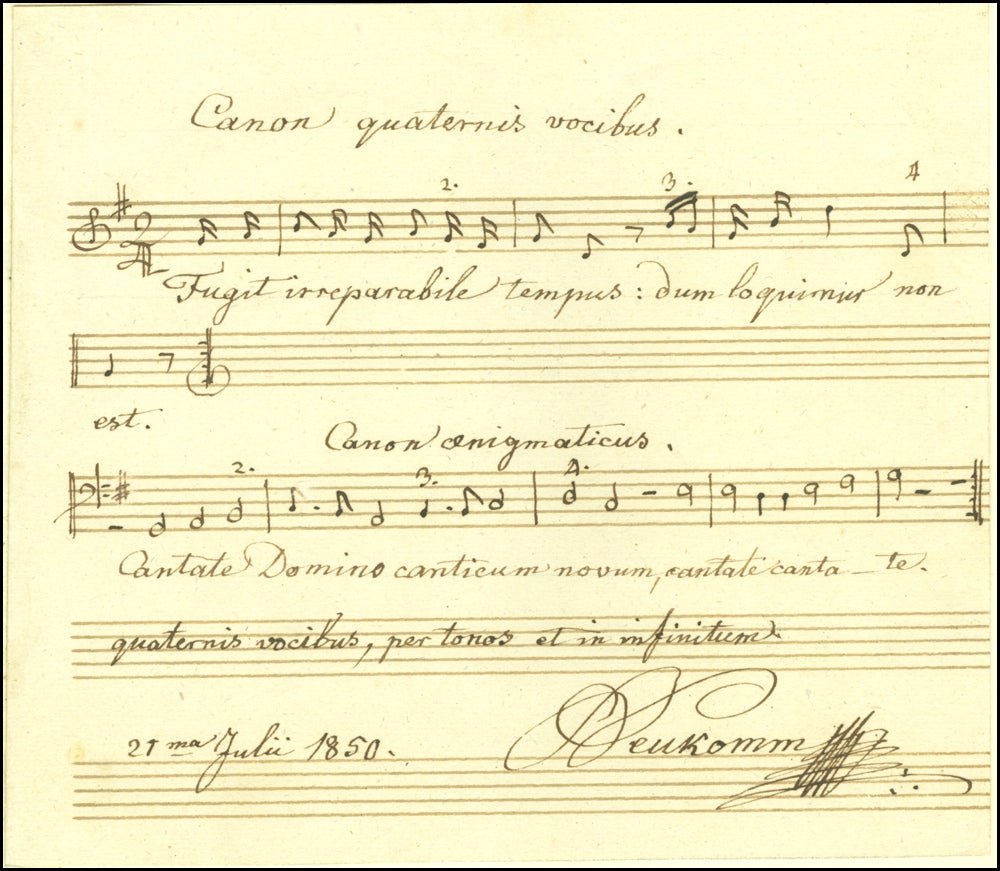 Canon quaternis vocibus.
2. 3. 4
2 4
Fugit irreparabile tempus: dum loquimur non
est.
Canon ænigmaticus.
2. 3. 4.
Cantate Domino canticum novum, cantate canta_te.
quaternis vocibus, per tonos et in infinitum
21ma Julii 1850.
Neukomm